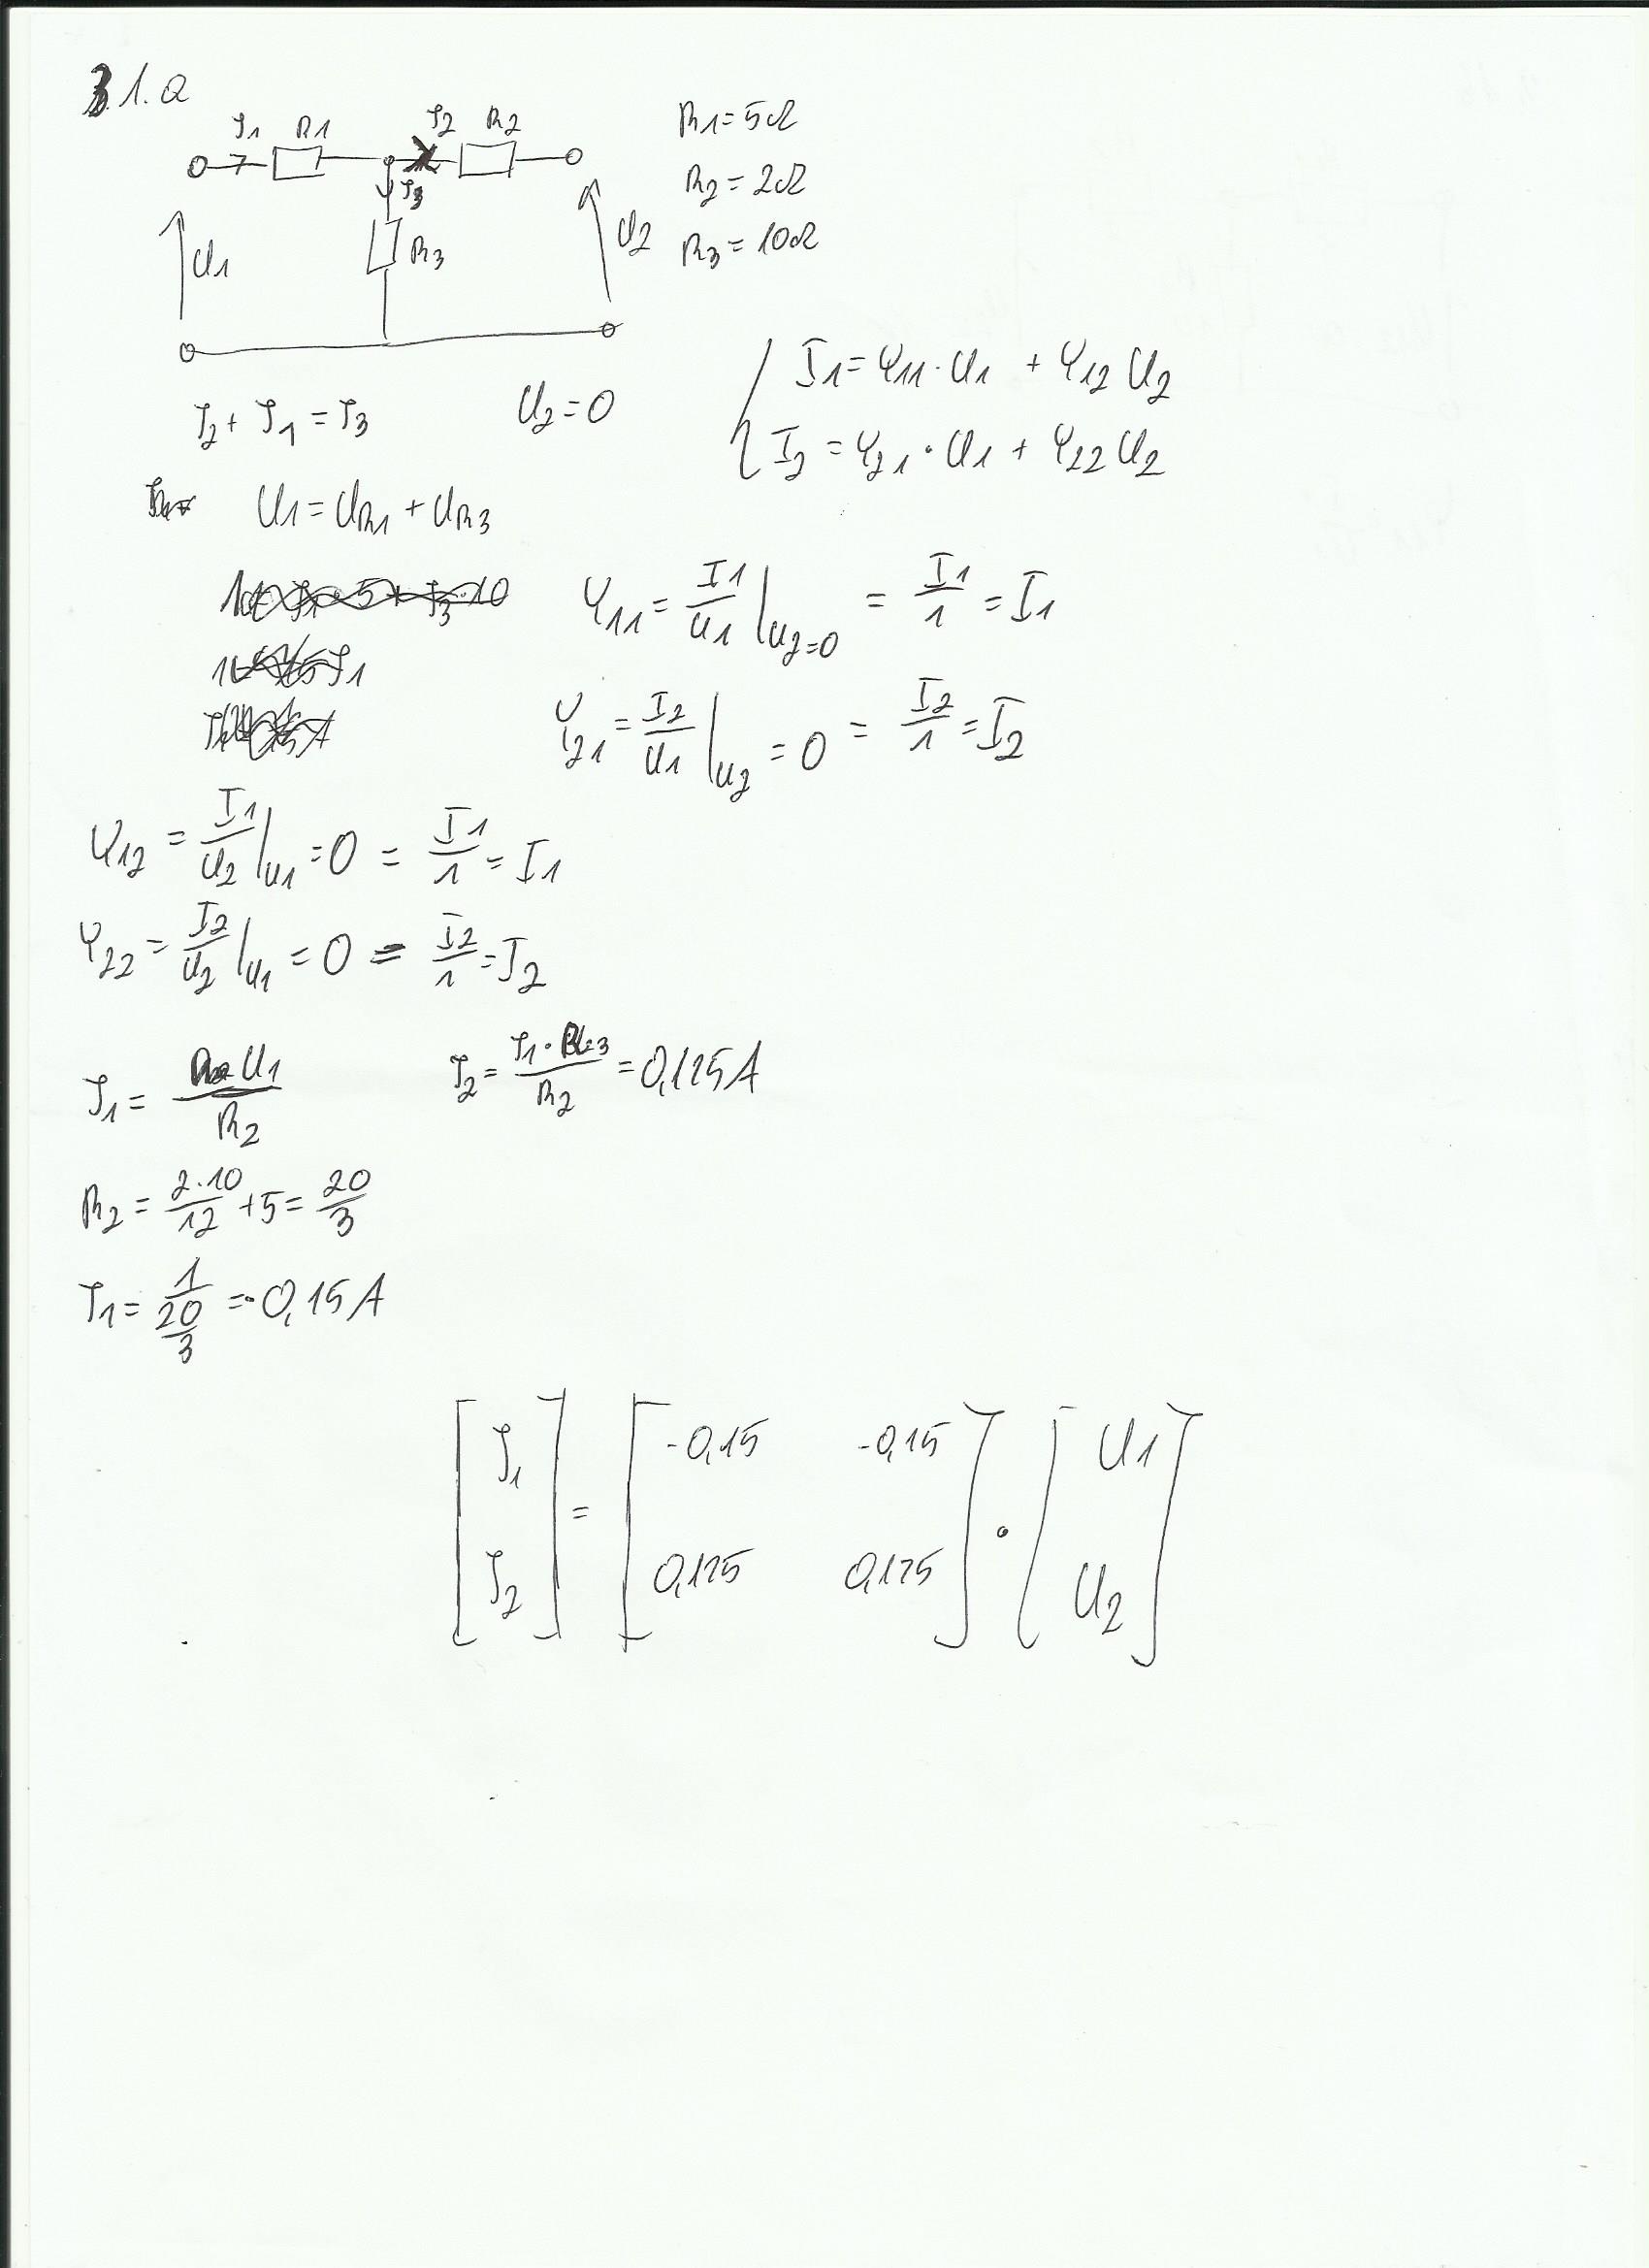 1.a
I1 R1 I2 R2
I3
U1 R3 U2
R1=5Ω
R2=2Ω
R3=10Ω
I2+I1=I3 U2=0
I1=Y11·U1+Y12U2
I2=Y21·U1+Y22U2
U1=UR1+UR3
Y11=I1/U1|U2=0=I1/1=I1
Y21=I2/U1|U2=0=I2/1=I2
Y12=I1/U2|U1=0=I1/1=I1
Y22=I2/U2|U1=0=I2/1=I2
I1=U1/R2 I2=I1·R3/R2=0,125A
R2=2·10/12+5=20/3
I1=1/(20/3)=-0,15A
[I1] = [-0,15 -0,15] · [U1]
[I2] [0,125 0,125] [U2]